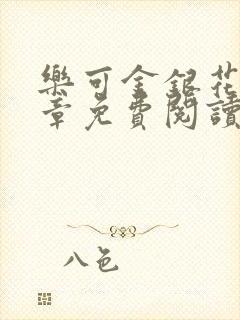 樂可金銀花
章免費閱讀
八色